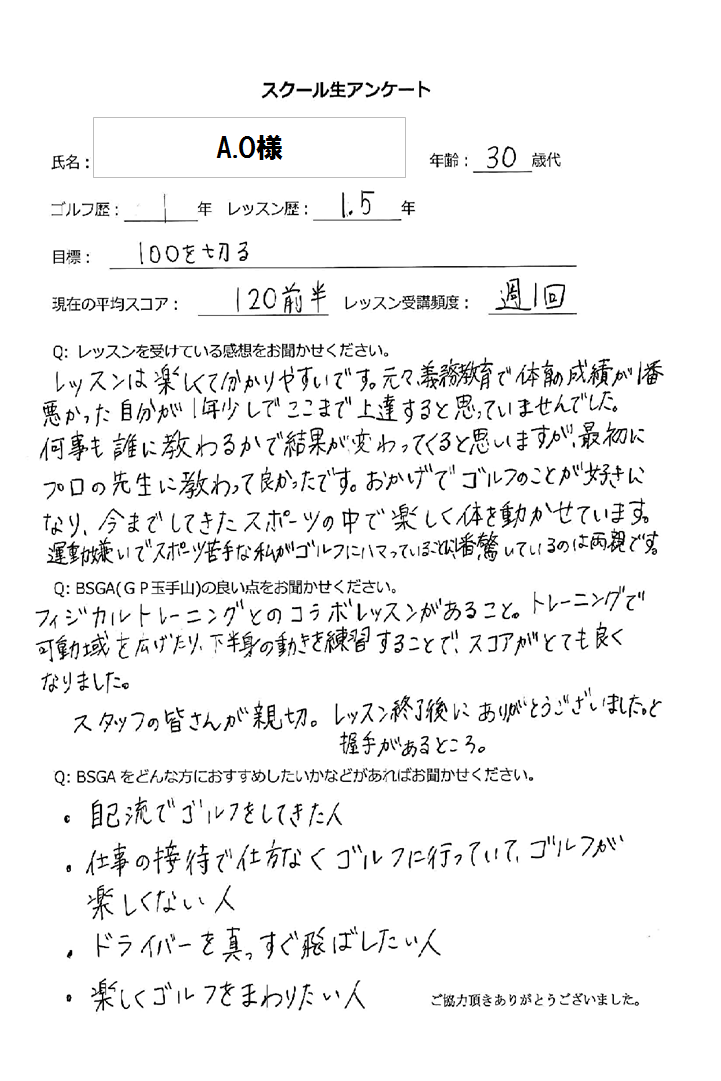 スクール生アンケート
氏名： A.O様 年齢： 30 歳代
ゴルフ歴： 1 年 レッスン歴： 1.5 年
目標： 100を切る
現在の平均スコア： 120前半 レッスン受講頻度： 週1回
Q: レッスンを受けている感想をお聞かせください。
レッスンは楽しくて分かりやすいです。元々、義務教育で体育の成績が1番
悪かった自分が1年少しでここまで上達すると思っていませんでした。
何事も誰に教わるかで結果が変わってくると思いますが、最初に
プロの先生に教わって良かったです。おかげでゴルフのことが好きに
なり、今までしてきたスポーツの中で楽しく体を動かせています。
運動嫌いでスポーツ苦手な私がゴルフにハマっていることに1番驚いているのは両親です。
Q: BSGA(GP玉手山)の良い点をお聞かせください。
フィジカルトレーニングとのコラボレッスンがあること。トレーニングで
可動域を広げたり、下半身の動きを練習することで、スコアがとても良く
なりました。
スタッフの皆さんが親切。レッスン終了後にありがとうございました。と
握手があるところ。
Q: BSGAをどんな方におすすめしたいかなどがあればお聞かせください。
・自己流でゴルフをしてきた人
・仕事の接待で仕方なくゴルフに行っていて、ゴルフが
楽しくない人
・ドライバーを真っすぐ飛ばしたい人
・楽しくゴルフをまわりたい人
ご協力頂きありがとうございました。